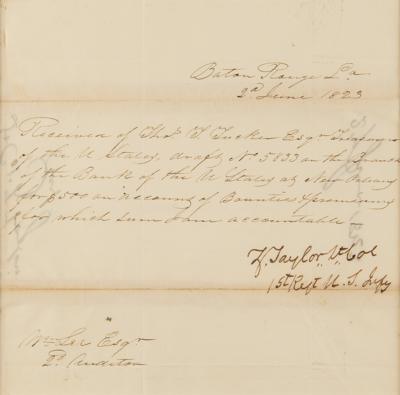 Baton Rouge La
2d June 1823
Received of Thos T. Tucker Esqr Treasurer
of the U States, draft No 5833 on the Branch
of the Bank of the U States at New Orleans
for $500 on account of Bounties & premiums
for which sum I am accountable –
Z. Taylor Lt Col
1st Regt U. S. Infy
Wm Lee Esqr
2d Auditor